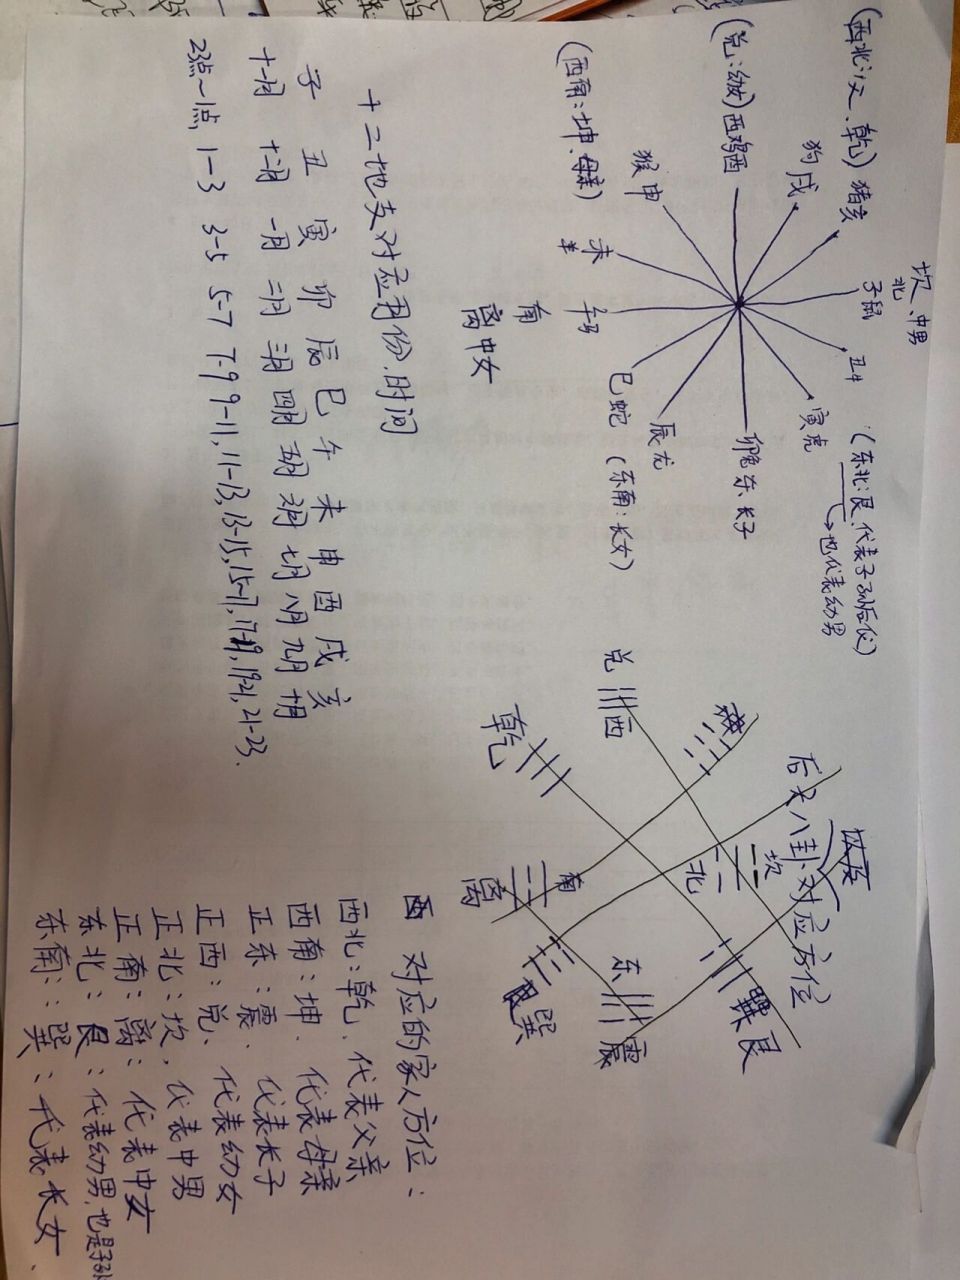 坎、中男
北
子鼠
(西北:父、乾)
猪亥
狗戌
(兑:幼女)西鸡酉
猴申
(西南:坤、母亲)
未羊
午马
南
离中女
巳蛇
辰龙
(东南:长女)
卯兔东长子
寅虎
丑牛
(东北:艮、代表子孙后代)
也代表幼男
十二地支对应月份、时间
子 丑 寅 卯 辰 巳 午 未 申 酉 戌 亥
十一月 十二月 一月 二月 三月 四月 五月 六月 七月 八月 九月 十月
23点~1点, 1-3 3-5 5-7 7-9 9-11, 11-13, 13-15, 15-17, 17-19, 19-21, 21-23.
后天八卦对应方位
坎
北
艮
兑
西
乾
东
震
南
离
巽
对应的家人方位:
西北:乾、代表父亲
西南:坤、代表母亲
正东:震、代表长子
正西:兑、代表幼女
正北:坎、代表中男
正南:离:代表中女
东北:艮:代表幼男、也是子孙
东南::巽:代表长女、